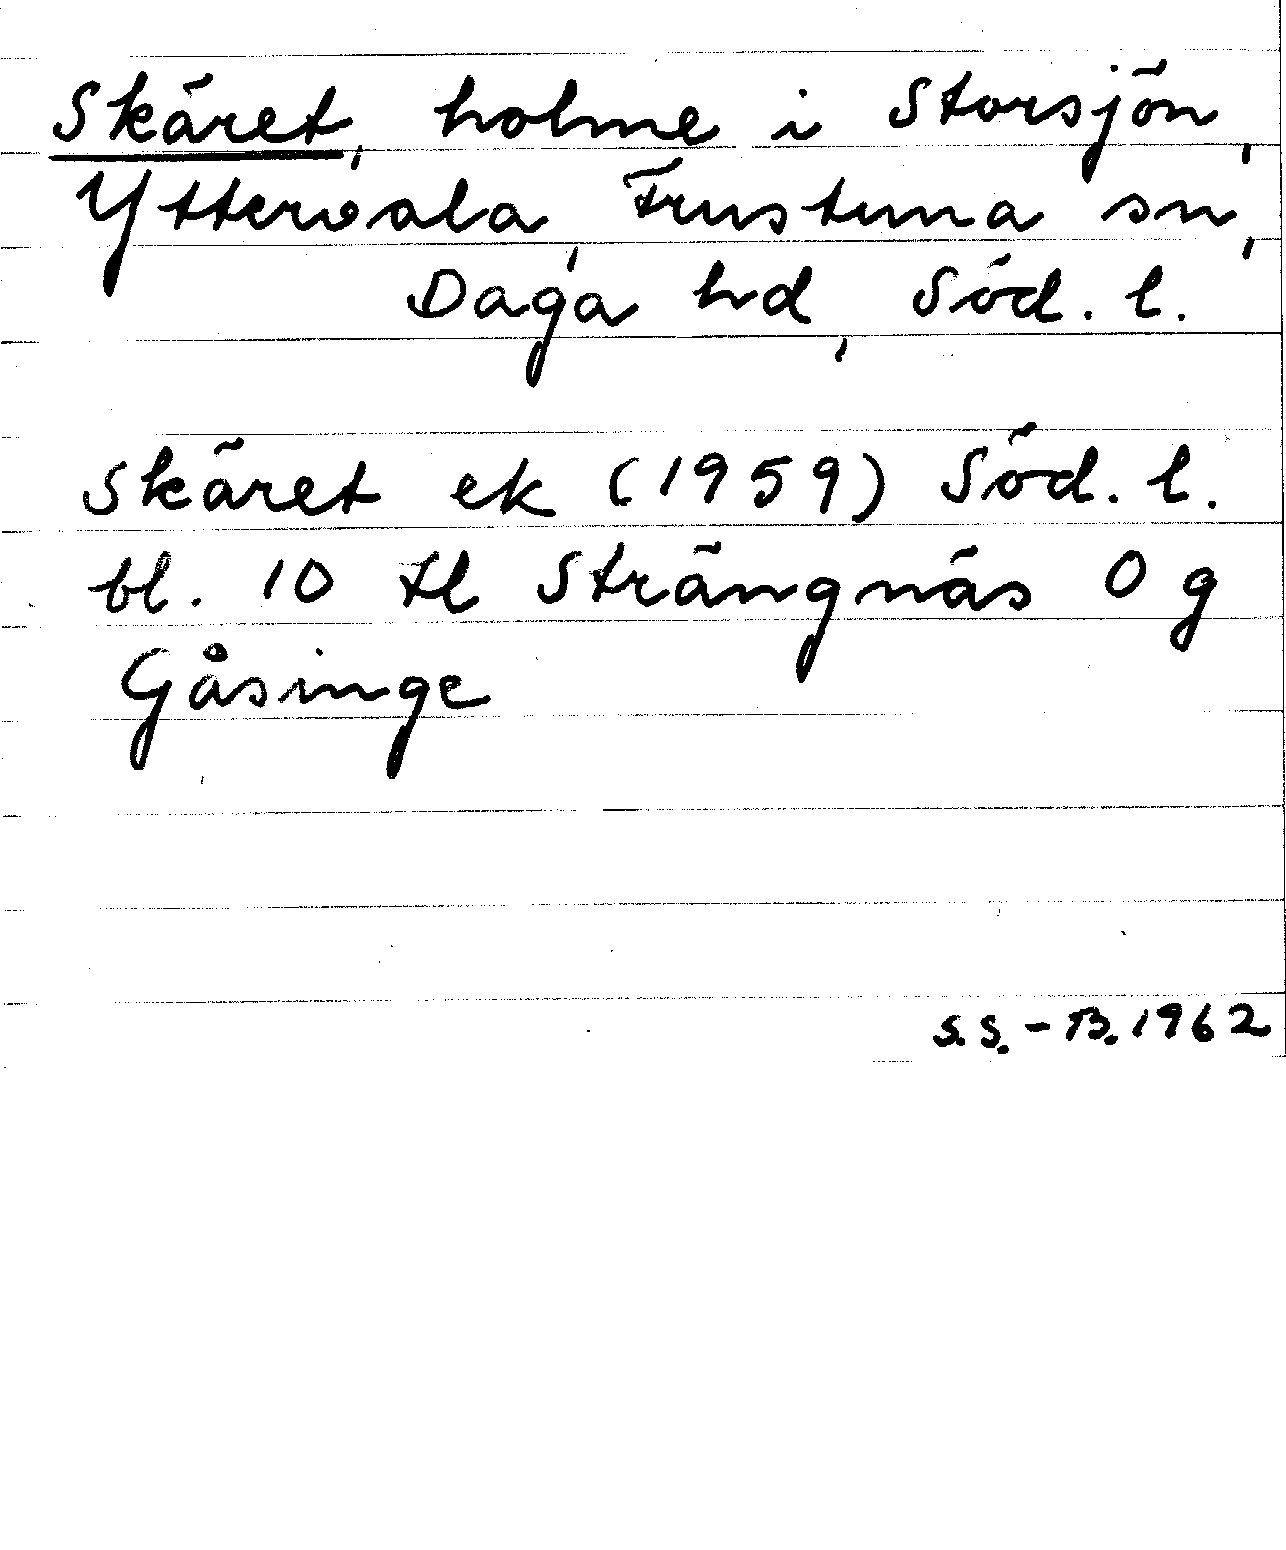 Skäret, holme i Storsjön,
Yttervala, Frustuna sn,
Daga hd, Söd. l.
Skäret ek (1959) Söd. l.
bl. 10 tl Strängnäs 0 g
Gåsinge
S.S.-B. 1962